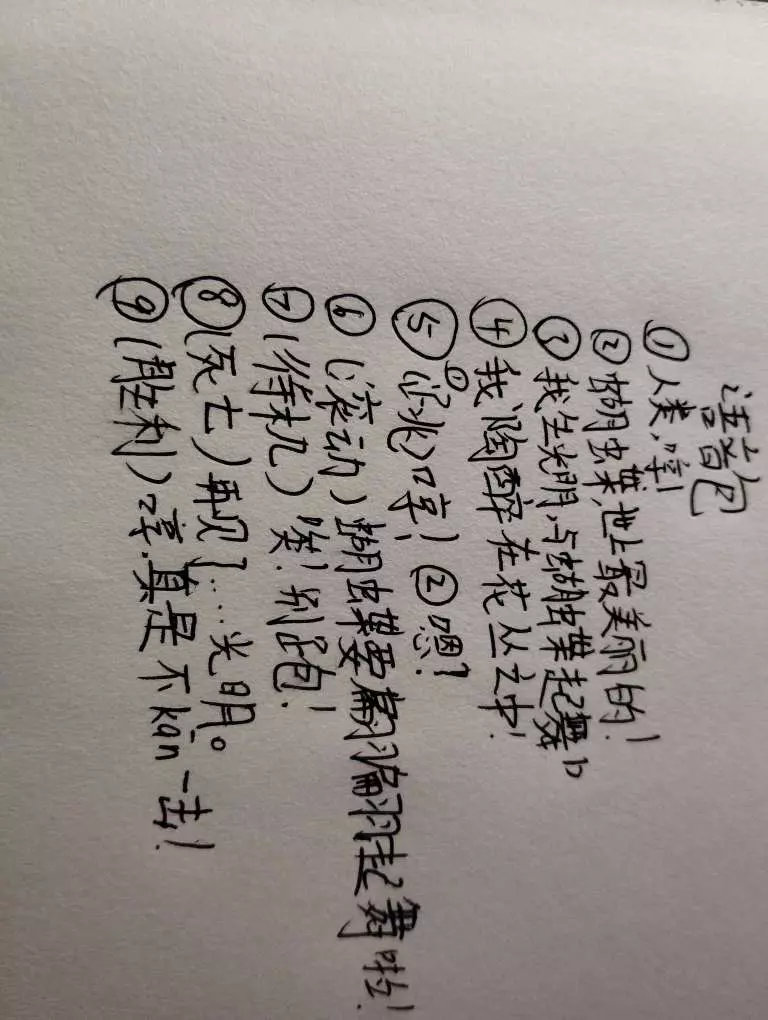 语音包
①人类,哼!
②蝴蝶,世上最美丽的!
③我生光明,与蝴蝶起舞
④我陶醉在花丛之中!
⑤(跳)①哼!②嗯?
⑥(滚动)蝴蝶要翩翩起舞啦!
⑦(待机)唉!别跑!
⑧(死亡)再见了...光明。
⑨(胜利)哼,真是不kān一击!